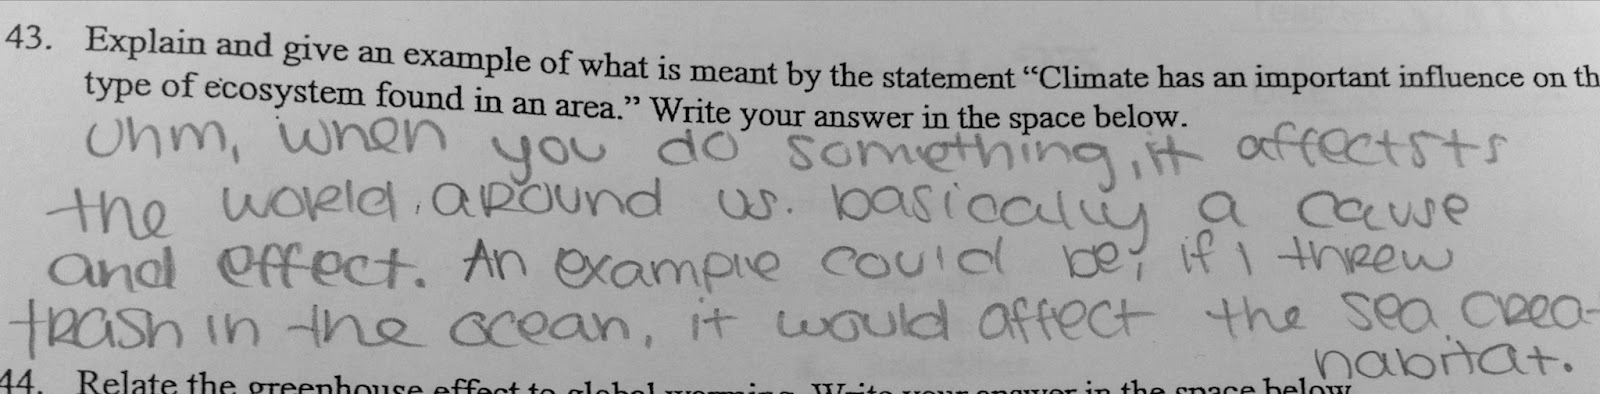 43. Explain and give an example of what is meant by the statement “Climate has an important influence on th
type of ecosystem found in an area.” Write your answer in the space below.
Uhm, when you do something, it affectsts
the world around us. basically a cause
and effect. An example could be, if i threw
trash in the ocean, it would affect the sea crea-
habitat.
44. Relate the greenhouse effect to global warming. Write your answer in the space below